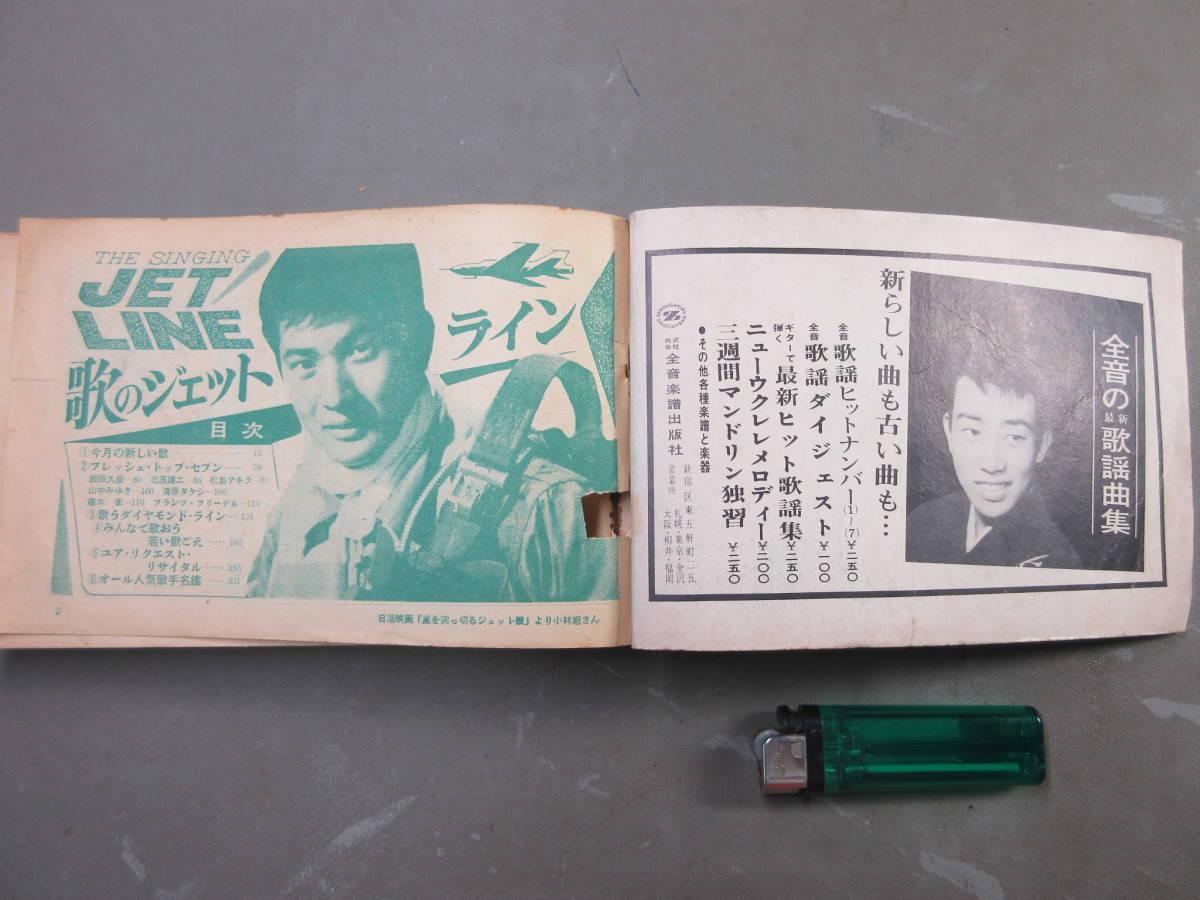 THE SINGING
JET
LINE
歌のジェット
ライン
目次
①今月の新しい歌……13
②フレッシュ・トップ・セブン……79
飯田久彦…80 北原謙二…86 松島アキラ…92
山中みゆき…100 清原タケシ…106
フランツ・フリーデル…114
③歌うダイヤモンド・ライン…131
④みんなで歌おう
若い歌ごえ……163
⑤ユア・リクエスト・
リサイタル……195
⑥オール人気歌手名鑑……331
2
日活映画「嵐を突っ切るジェット機」より小林旭さん
全音の最新歌謡曲集
新らしい曲も古い曲も…
全音 歌謡ヒットナンバー(1〜7)¥二五〇
全音 歌謡ダイジェスト¥一〇〇
ギターで弾く 最新ヒット歌謡集¥二五〇
ニューウクレレメロディー¥二〇〇
三週間マンドリン独習¥二五〇
●その他各種楽譜と楽器
株式会社 全音楽譜出版社
新宿区東五軒町二五
営業所 札幌・東京・金沢
大阪・柳井・福岡